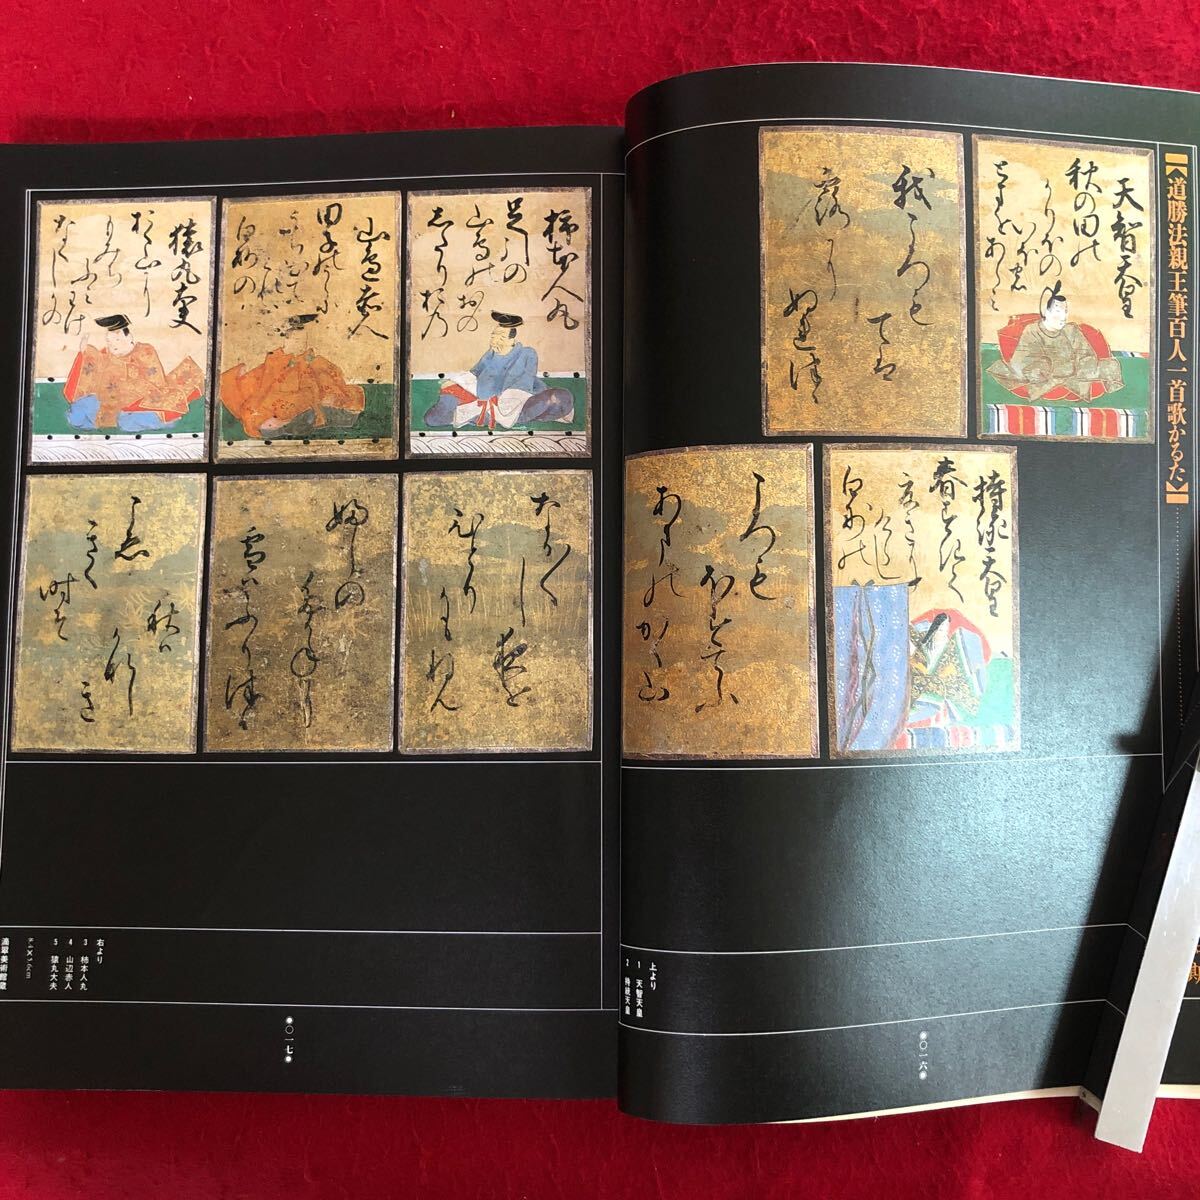 【道勝法親王筆百人一首歌かるた】
天智天皇
秋の田の
かりほの
いほの
とまをあらみ
我ころも
ては
露に
ぬれつゝ
持統天皇
春すきて
夏き
にけらし
白妙の
ころも
ほすてふ
あまのかく山
上より
1 天智天皇
2 持統天皇
●〇一六●
柿本人丸
足引の
山鳥のおの
したりおの
なか〳〵し夜を
ひとり
かもねん
山邊赤人
田子のうらに
うち出て
みれは
白妙の
ふしの
たかねに
雪はふりつゝ
猿丸大夫
おく山に
もみち
ふみわけ
なくしかの
こゑ
きく
時そ
秋は
かなしき
右より
3 柿本人丸
4 山辺赤人
5 猿丸大夫
8.4×5.6cm
滴翠美術館蔵
●〇一七●